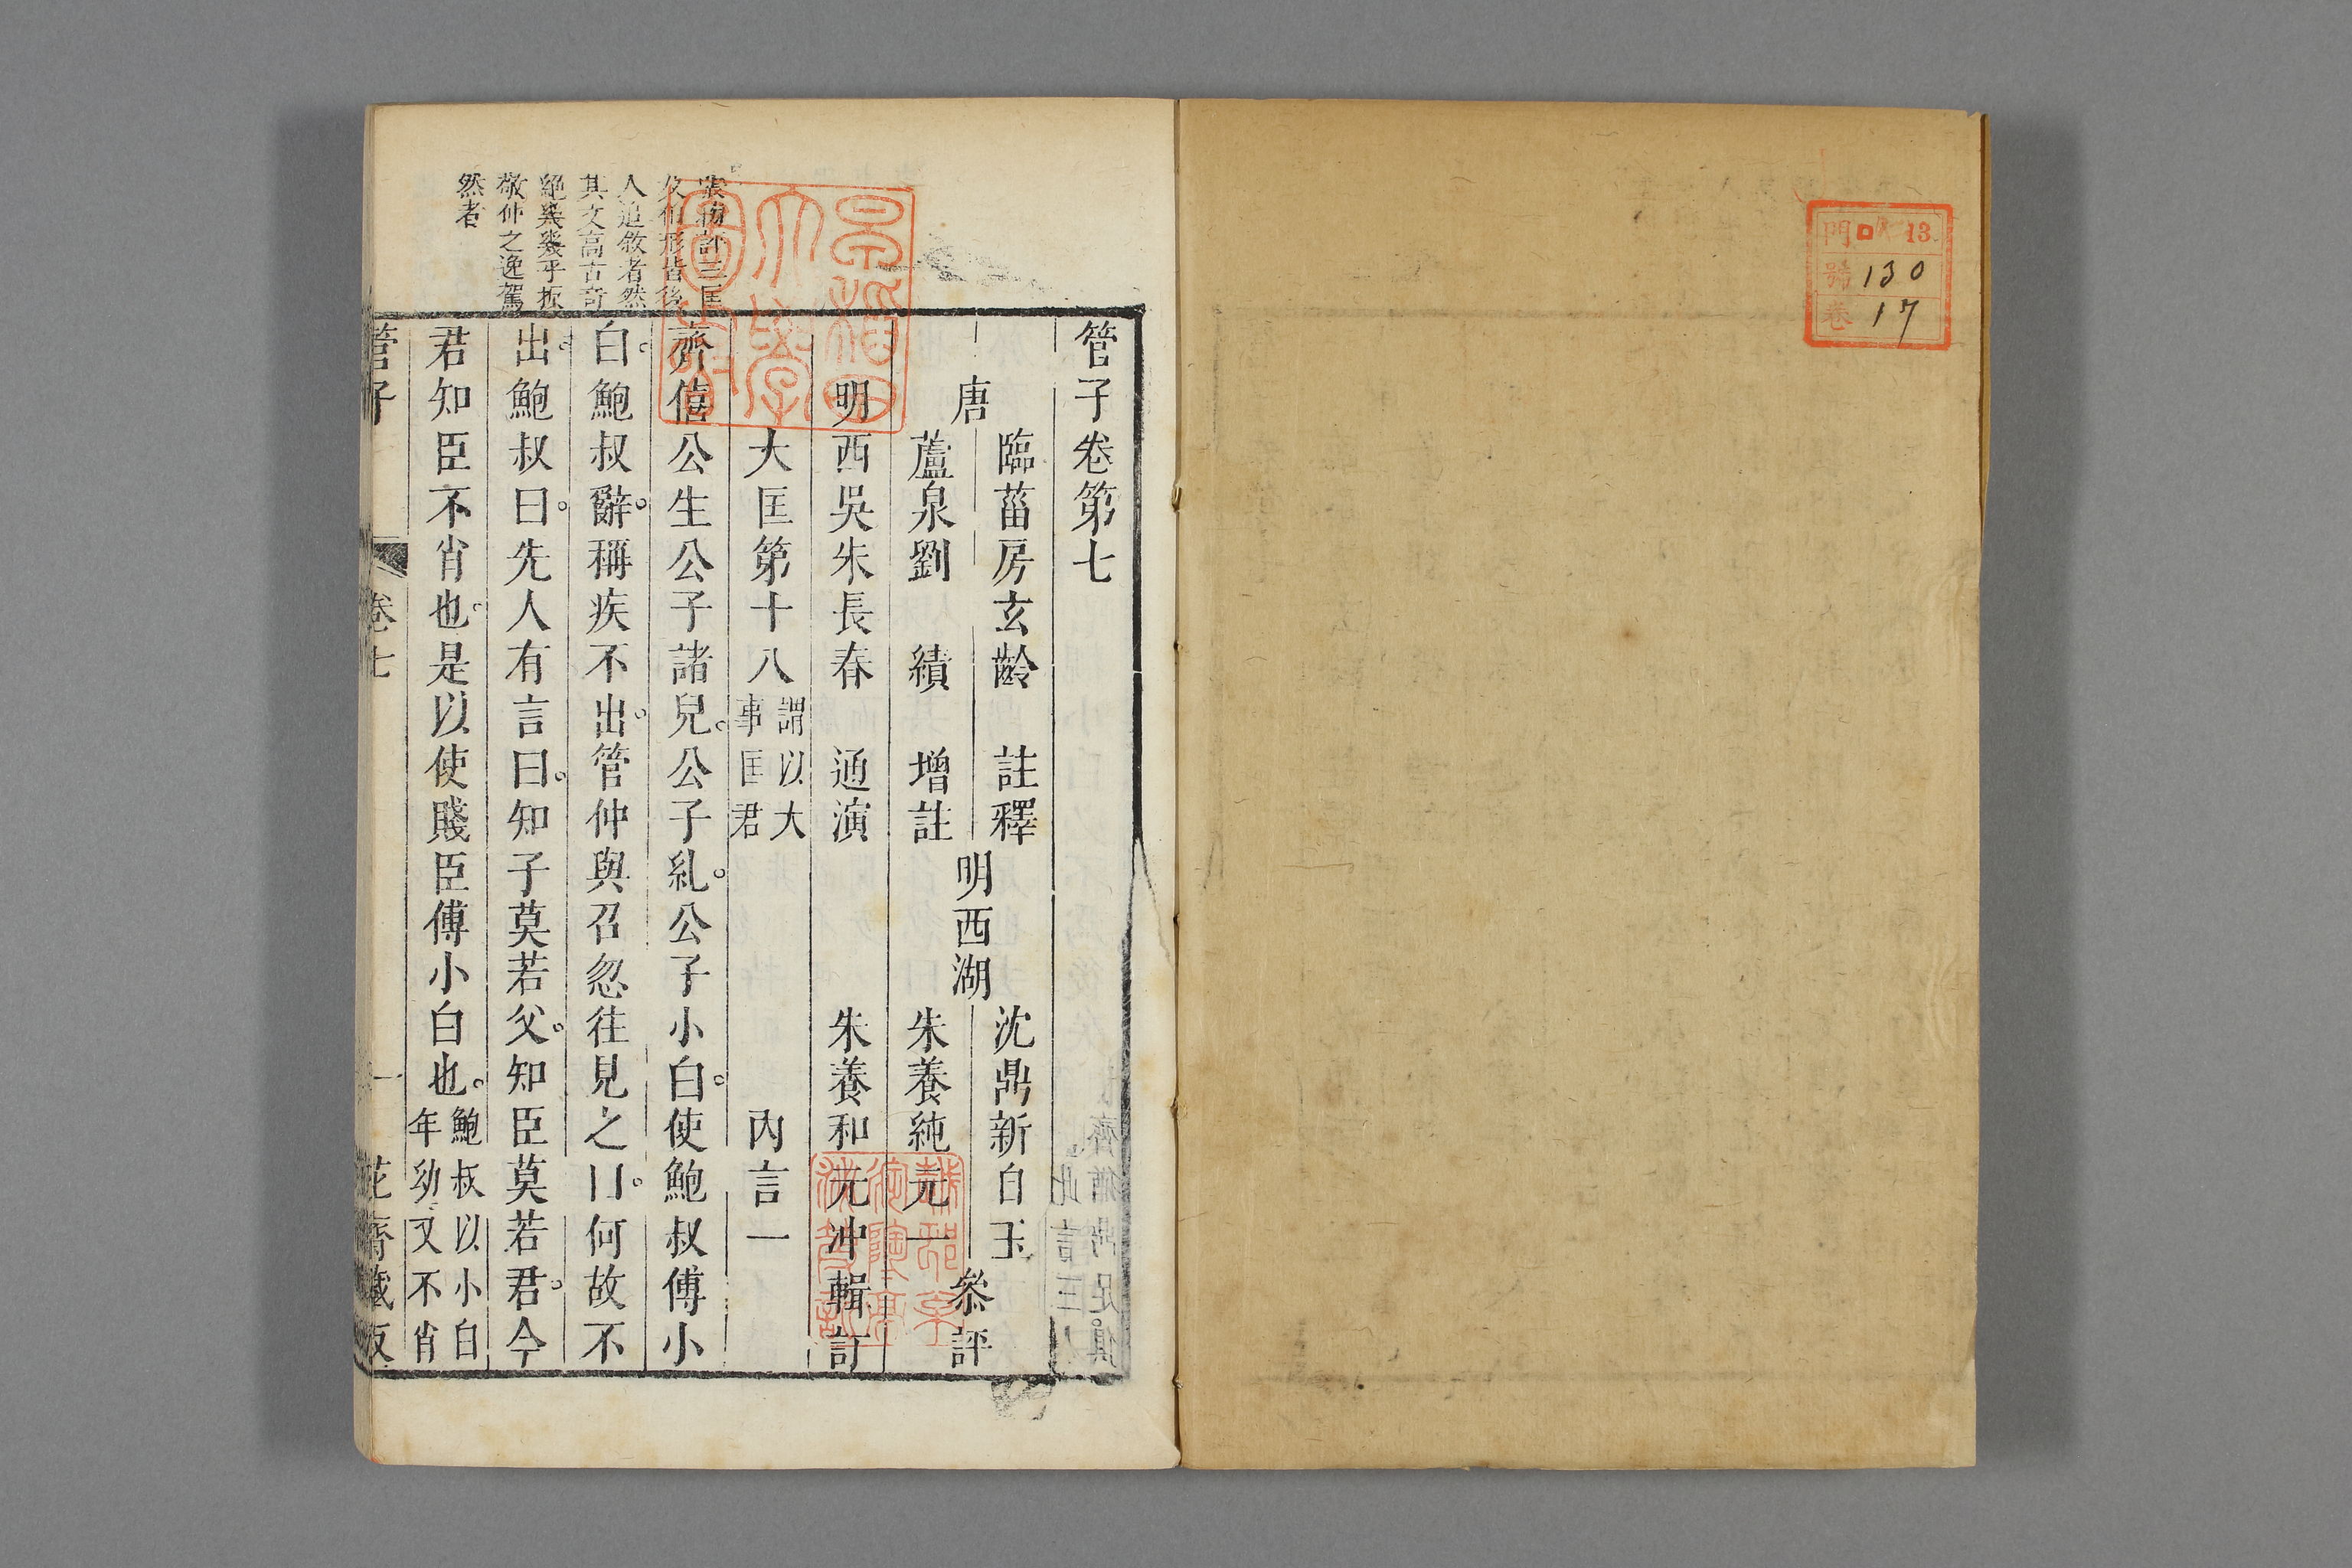 門 ロ 13
號 130
卷 17
管子卷第七
唐 臨菑房玄齡 註釋
蘆泉劉 績 增註
明西湖 沈鼎新自玉
朱養純元一 叅評
明西吳朱長春 通演
朱養和元沖輯訂
大匡第十八 謂以大
事匡君
內言一
齊僖公生公子諸兒。公子糺。公子小白。使鮑叔傅小
白。鮑叔辭。稱疾不出。管仲與召忽往見之曰。何故不
出。鮑叔曰。先人有言曰。知子莫若父。知臣莫若君。今
君知臣不肖也。是以使賤臣傅小白也。鮑叔以小白
年幼又不肖
評三匡
皆後
人追敘者然
其文高古奇
絕
敬仲之逸駕
然者
管子 卷七 一 花齋藏板
早稻田
大學
圖書